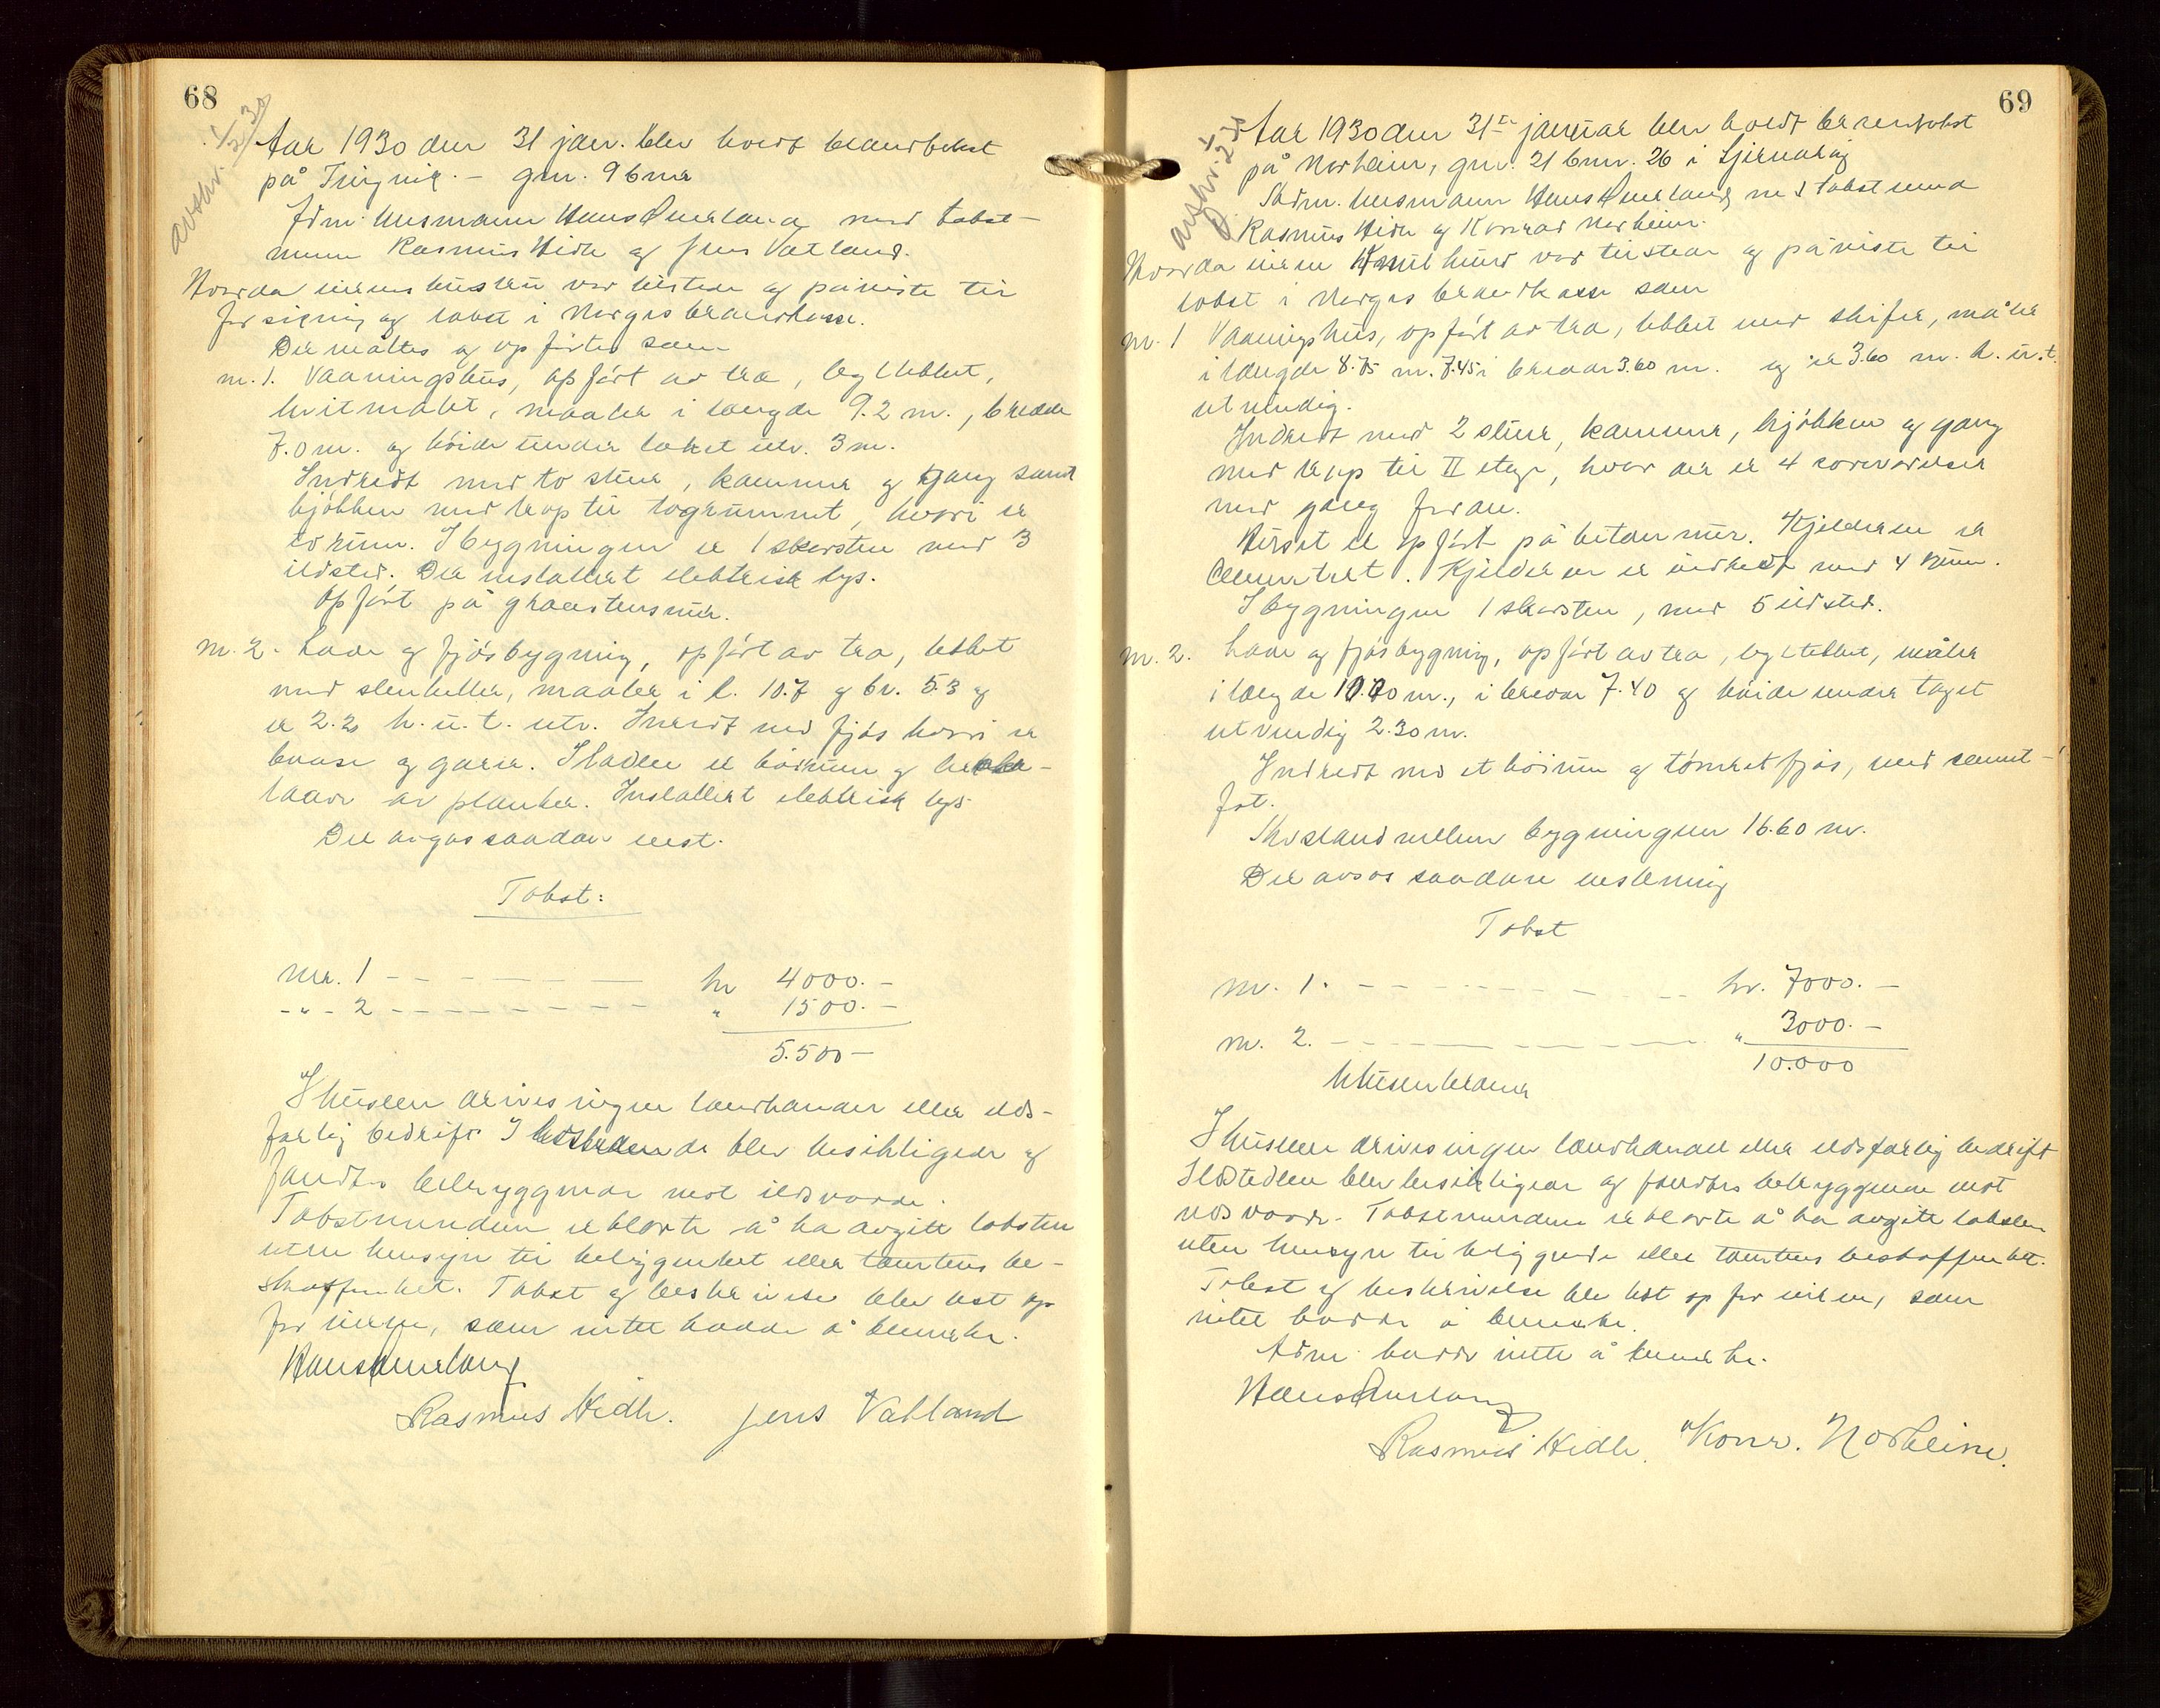 68
avskr. 1/2 30
Aar 1930 den 31 jan. blev holdt brandtakst
på Tingvik. — gnr. 9 bnr
Adm. lensmann Hans med takst-
menn Rasmus Hidle og Jens Vatland.
Hvorda eierens huslru var tilstede og påviste til
forsikring og takst i Norges brandkasse.
Der måltes og opførtes som
nr. 1. Vaaningshus, opført av træ, teglteklet,
hvitmalet, maaler i længde 9.2 m., bredde
7.0 m. og høide under taket utv. 3 m.
Indredt med to stuer, kammer og gang samt
kjøkken med trap til loftsrummet, hvori er
to rum. I bygningen er 1 skorsten med 3
ildsted. Der installert elektrisk lys.
Opført på graastensmur.
nr. 2. Lade og fjøsbygning, opført av træ, tekket
med stenheller, maaler i l. 10.7 og br. 5.3 og
er 2.20 h. u. t. utv. Inredt med fjøs hvori er
baase og garer. I laden er høirum og træske-
laave av planker. Installert elektrisk lys.
Der avgas saadan
Takst:
nr. 1 — — — — — — kr 4000.—
-„- 2 — — — — — — „ 1500.—
5.500—
I husene drives ingen landhandel eller ilds-
farlig bedrift. Ildstedene blev besiktiget og
fandtes betryggende mot ildsvaade.
Takstmendene erklærte å ha avgitt taksten
uten hensyn til beliggenhet eller tomtens be-
skaffenhet. Takst og beskrivelse blev lest op
for eieren, som intet hadde å bemerke.
Hans
Rasmus Hidle. Jens Vatland
69
avskr. 1/2 30
Aar 1930 den 31te januar blev holdt brandtakst
på Norheim, gnr. 21 bnr. 26 i Sjernarøy
Adm. lensmann Hans med takstmenn
Rasmus Hidle og Konrad Norheim.
Hvorda eieren var tilstede og påviste til
takst i Norges brandkasse som
nr. 1 Vaaningshus, opført av træ, tekket med skifer, måler
i længde 8.75 m. 7.45 i bredde 3.60 m. og er 3.60 m. h. u. t.
utvendig.
Indredt med 2 stuer, kammer, kjøkken og gang
med trap til II etage, hvor der er 4 soveværelser
med gang foran.
Huset er opført på betonmur. Kjelderen er
cementert. Kjelderen er indredt med 4 rum.
I bygningen 1 skorsten, med 5 ildsted.
nr. 2. Lade og fjøsbygning, opført av træ, teglteklet, måler
i længde 10.70 m., i bredde 7.40 og høide under taget
utvendig 2.30 m.
Indredt med et høirum og tømret fjøs, med cement-
Avstand mellem bygningene 16.60 m.
Der avgas saadan
Takst
nr. 1. — — — — — — kr. 7000.—
nr. 2. — — — — — — „ 3000.—
10.000
I husene drives ingen landhandel eller ildsfarlig bedrift
Ildstedene blev besiktiget og fandtes betryggende mot
ildsvaade. Takstmendene erklærte å ha avgitt taksten
uten hensyn til beliggende eller tomtens beskaffenhet.
Takst og beskrivelse blev lest op for eieren, som
intet hadde å bemerke.
Adm. hadde intet å bemerke.
Hans
Rasmus Hidle. Konr. Norheim.